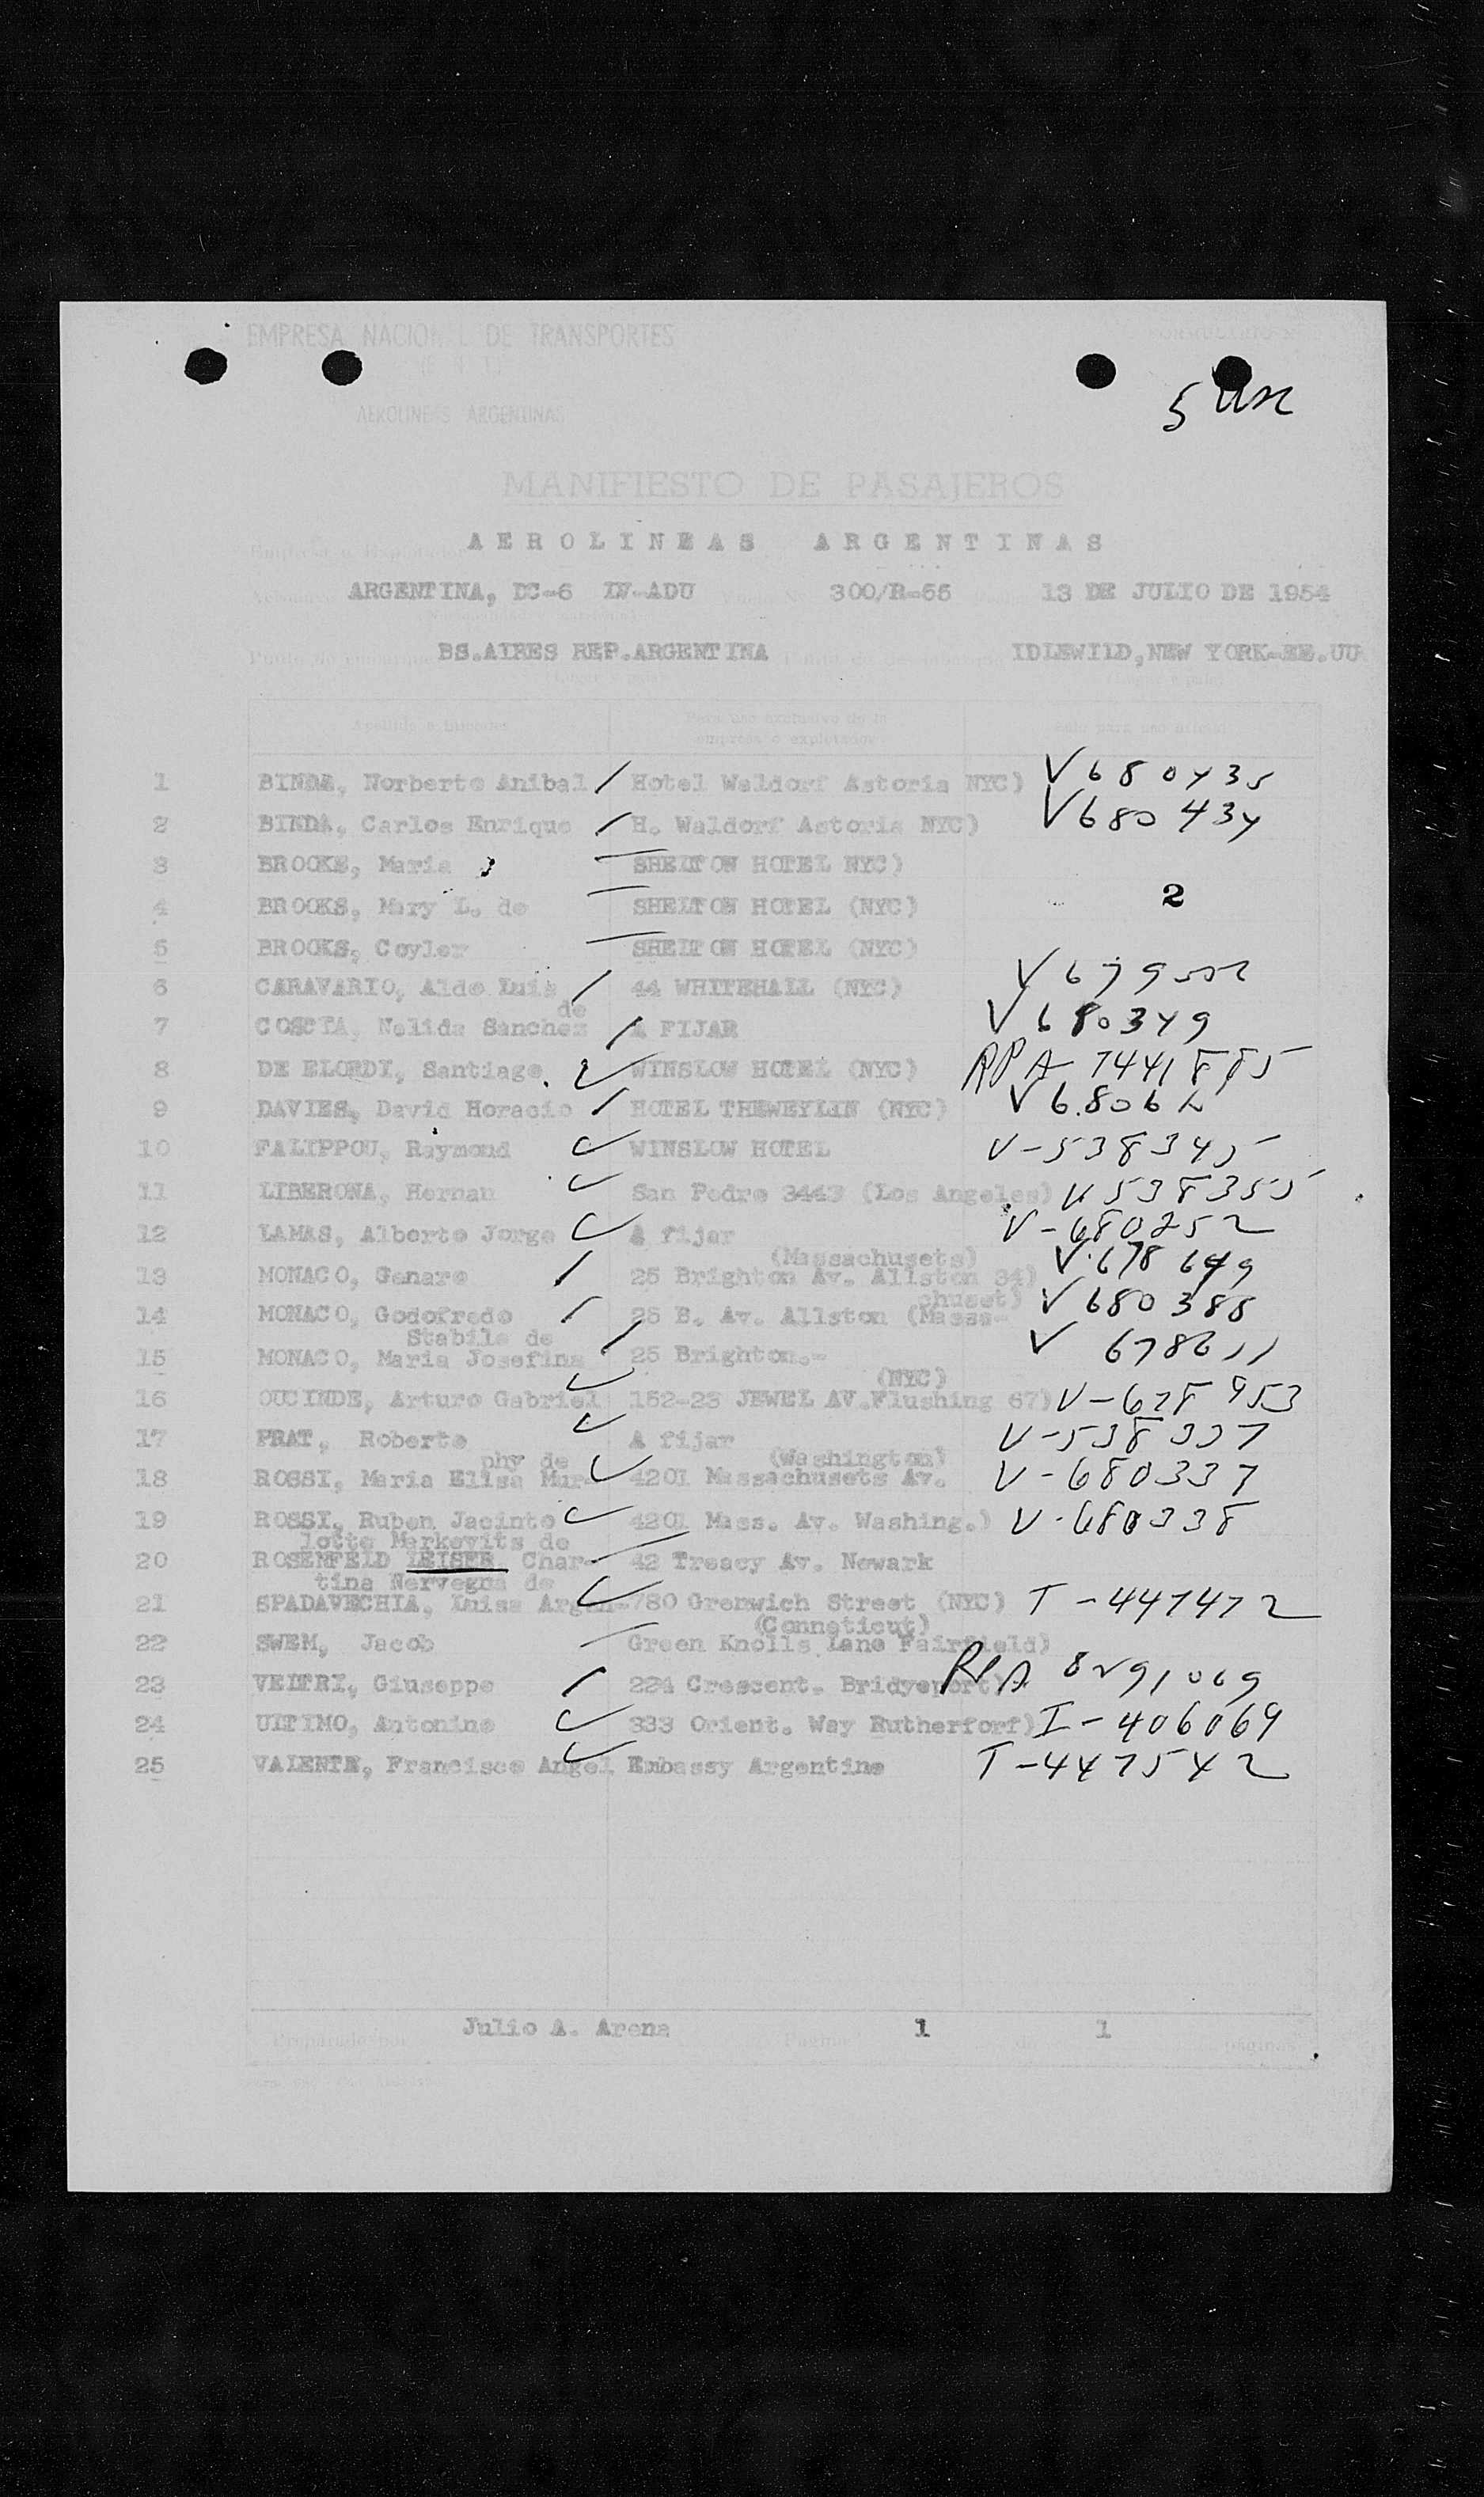 EMPRESA NACIONAL DE TRANSPORTES
AEROLINEAS ARGENTINAS
5
MANIFIESTO DE PASAJEROS
AEROLINEAS ARGENTINAS
ARGENTINA, DC-6 LV-ADU 300/R-55 13 DE JULIO DE 1954
BS.AIRES REP.ARGENTINA IDLEWILD,NEW YORK-EE.UU
Apellido e iniciales Para uso exclusivo de la Solo para uso oficial
empresa o explotador
1 BINDA, Norberto Anibal Hotel Waldorf Astoria NYC) V680435
2 BINDA, Carlos Enrique H. Waldorf Astoria NYC) V680434
3 BROOKE, Maria SHELTON HOTEL NYC)
4 BROOKS, Mary L. de SHELTON HOTEL (NYC) 2
5 BROOKS, Coyler SHELTON HOTEL (NYC)
6 CARAVARIO, Aldo Luis 44 WHITEHALL (NYC)
de
7 COSCIA, Nelida Sanchez A FIJAR V680349
8 DE ELORDI, Santiago. WINSLOW HOTEL (NYC)
9 DAVIES, David Horacio HOTEL THEWEYLIN (NYC)
10 FALIPPOU, Raymond WINSLOW HOTEL V-538345
11 LIBERONA, Hernan San Pedro 3443 (Los Angeles) V538355
12 LAMAS, Alberto Jorge A fijar V-680252
(Massachusets)
13 MONACO, Genaro 25 Brighton Av. Allston 34) V.678649
chuset)
14 MONACO, Godofredo 25 B. Av. Allston (Massa- V680388
Stabile de
15 MONACO, Maria Josefina 25 Brighton.- V 678611
(NYC)
16 OUCINDE, Arturo Gabriel 152-23 JEWEL AV.Flushing 67) V-678953
17 PRAT, Roberto A fijar V-538337
phy de (Washington)
18 ROSSI, Maria Elisa Mur- 4201 Massachusets Av. V-680337
19 ROSSI, Ruben Jacinto 4201 Mass. Av. Washing.) V-680338
lotte Markovits de
20 ROSENFELD LEISER, Char- 42 Treacy Av. Newark
tina Nervegna de
21 SPADAVECHIA, Luisa Argen- 780 Grenwich Street (NYC) T-447472
(Conneticut)
22 SWEM, Jacob Green Knolls Lane Fairfield)
23 VELTRI, Giuseppe 224 Crescent. Bridyeport) RPA 8291069
24 ULTIMO, Antonino 333 Orient. Way Rutherforf) I-406069
25 VALENTE, Francisco Angel Embassy Argentina T-447542
Preparado por Julio A. Arena Pagina 1 de 1 paginas